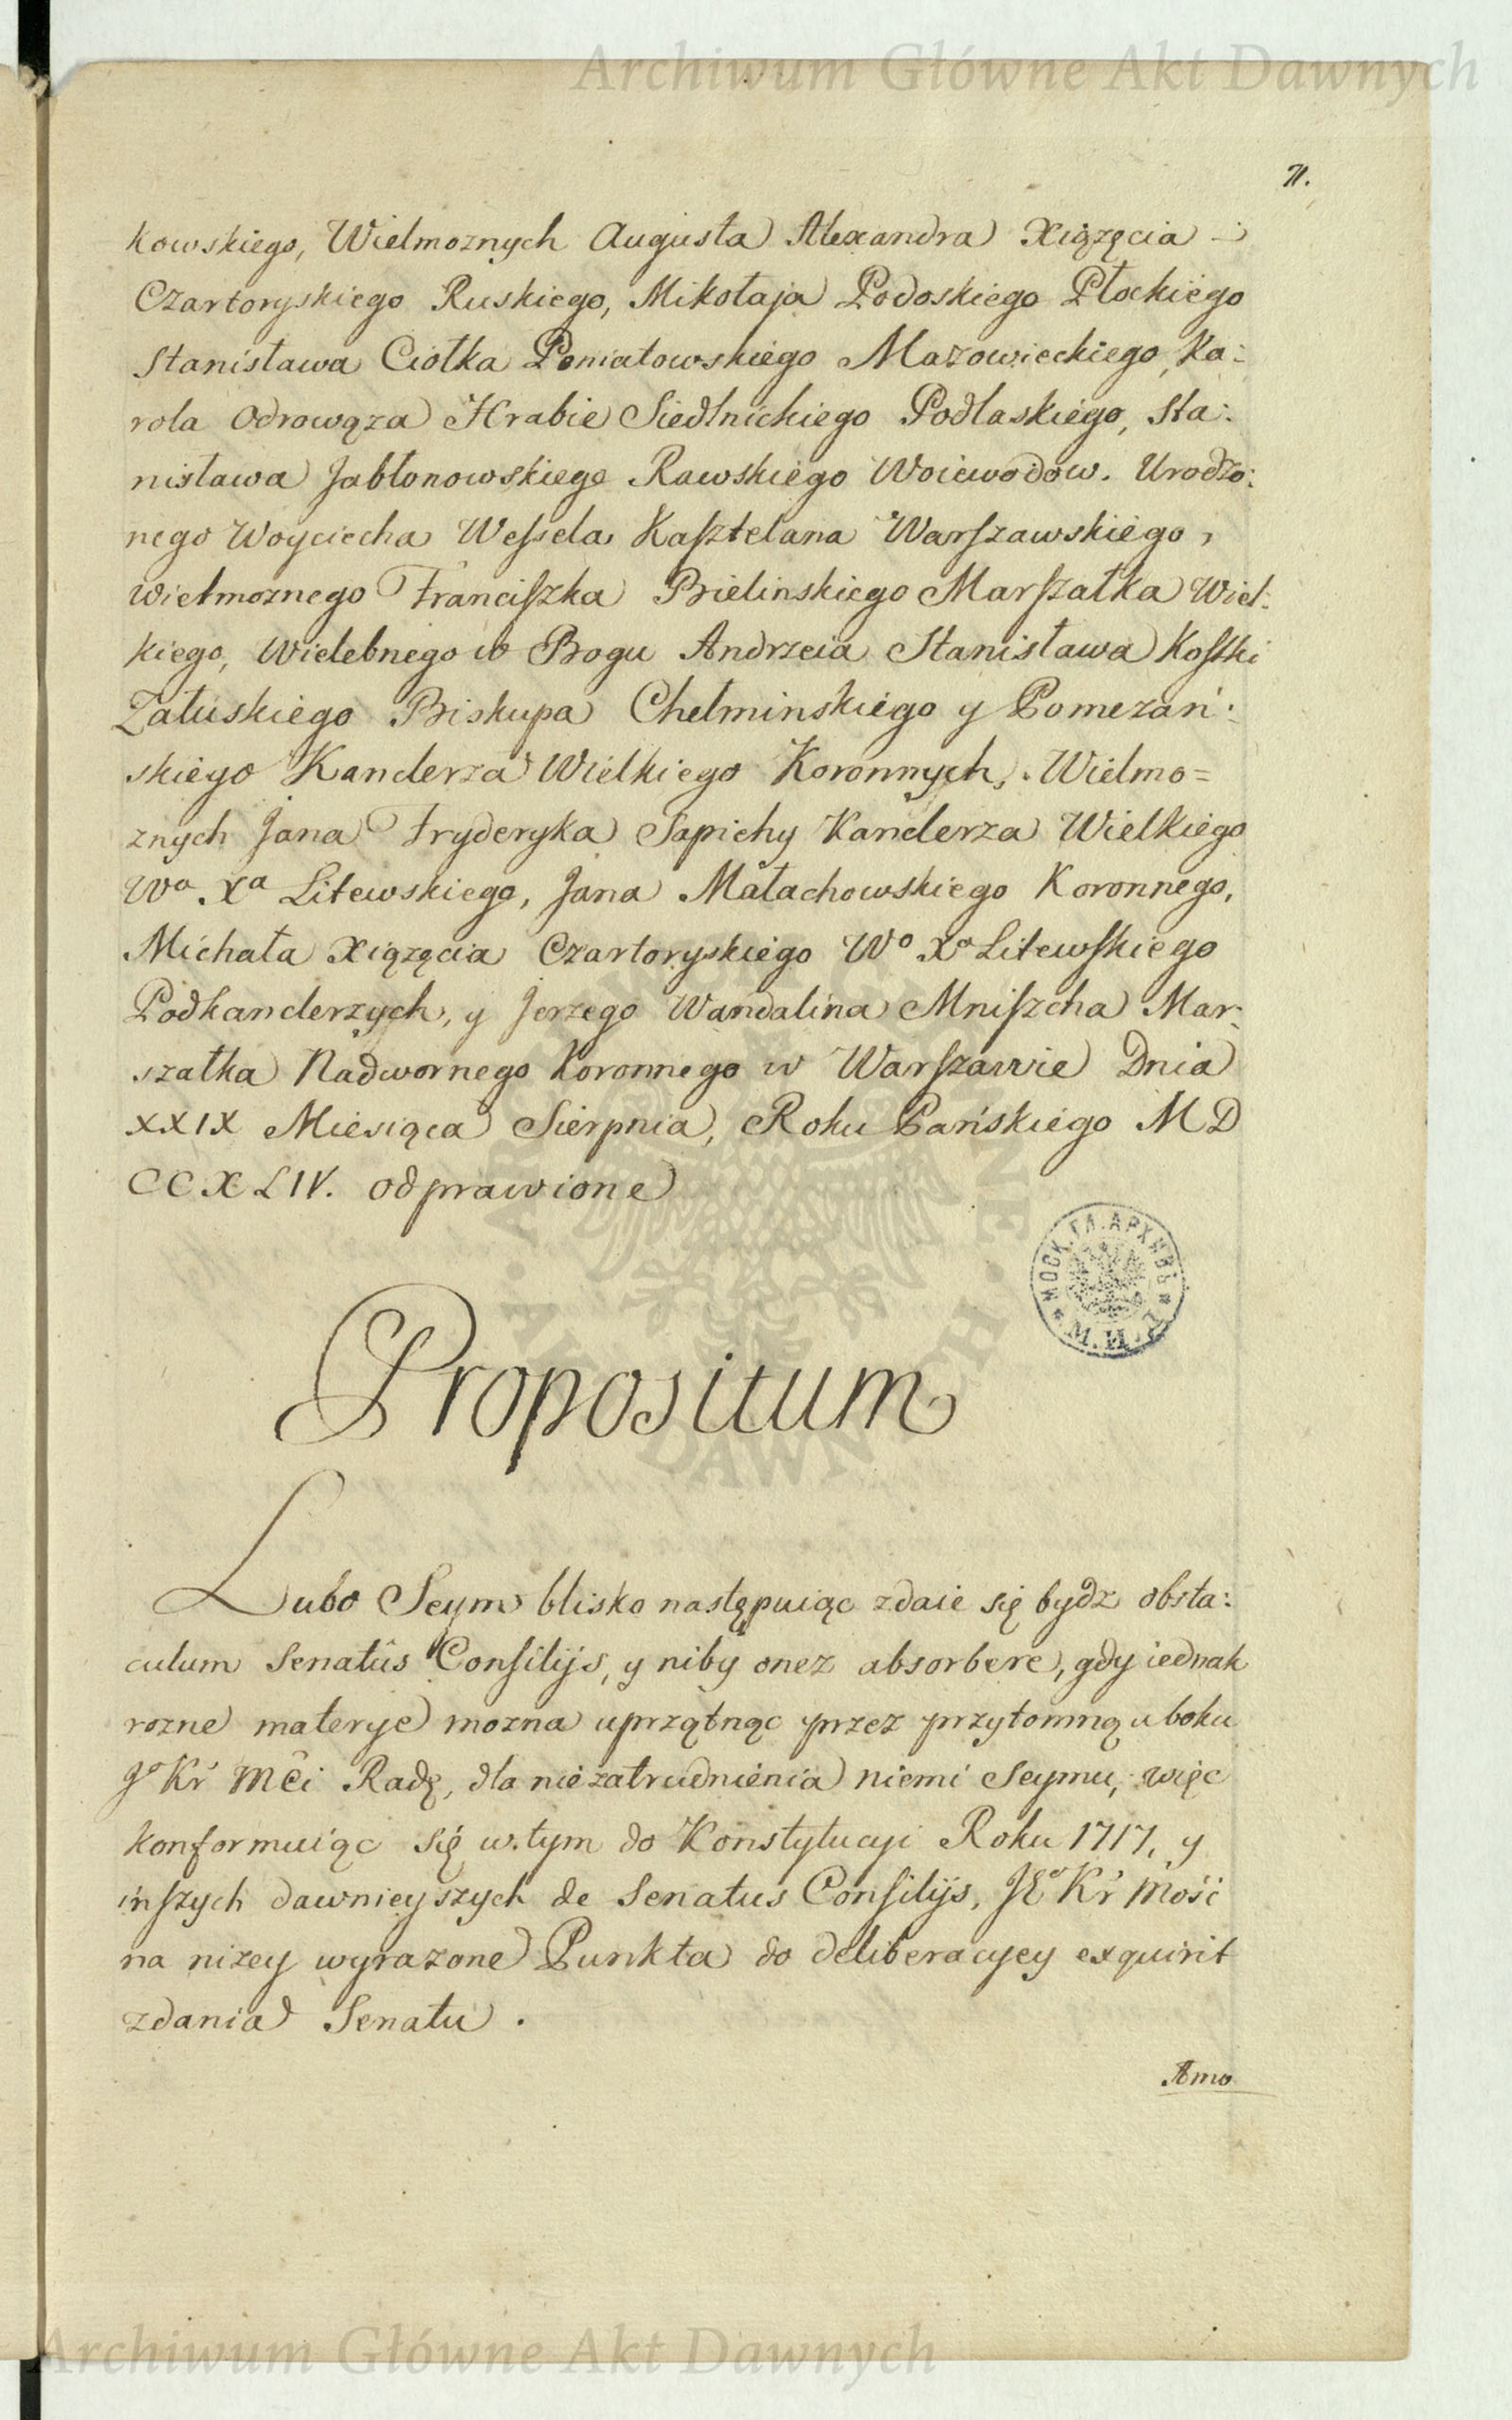 Archiwum Główne Akt Dawnych
71.
kowskiego, Wielmoznych Augusta Alexandra Xiązęcia
Czartoryskiego Ruskiego, Mikołaja Podoskiego Płockiego
Stanisława Ciołka Poniatowskiego Mazowieckiego, Ka:
rola Odrowąza Hrabie Siedlnickiego Podlaskiego, Sta:
nisława Jabłonowskiego Rawskiego Woiewodow. Urodzo:
nego Woyciecha Weſsela Kaſztelana Warſzawskiego,
Wielmoznego Franciſzka Bielinskiego Marſzałka Wiel:
kiego, Wielebnego w Bogu Andrzeia Stanisława Koſtki
Załuskiego Biskupa Chełminskiego y Pomezań:
skiego Kanclerza Wielkiego Koronnych, Wielmo=
znych Jana Fryderyka Sapiehy Kanclerza Wielkiego
Wo. Xa Litewskiego, Jana Małachowskiego Koronnego,
Michała Xiązęcia Czartoryskiego Wo Xa Litewſkiego
Podkanclerzych, y Jerzego Wandalina Mniſzcha Mar:
szałka Nadwornego Koronnego w Warſzawie Dnia
XXIX Miesiąca Sierpnia, Roku Pańskiego MD
CCXLIV. odprawione
МОСК. ГЛ. АРХИВЪ * М. И. Д. *
Propositum
Lubo Seym blisko następuiąc zdaie się bydz obsta:
culum Senatûs Conſilijs, y niby onez absorbere, gdy iednak
rozne materye mozna uprzątnąc przez przytomną u boku
Jo Kr Mci Radę, dla nie zatrudnienia niemi Seymu, więc
konformuiąc się w tym do Konstytucyi Roku 1717, y
inſzych dawnieyszych de Senatus Conſilijs, JEo Kr Mość
na nizey wyrazone Punkta do deliberacyey exquirit
zdania Senatu.
Amo
ARCHIWUM GŁÓWNE · AKT DAWNYCH ·
Archiwum Główne Akt Dawnych